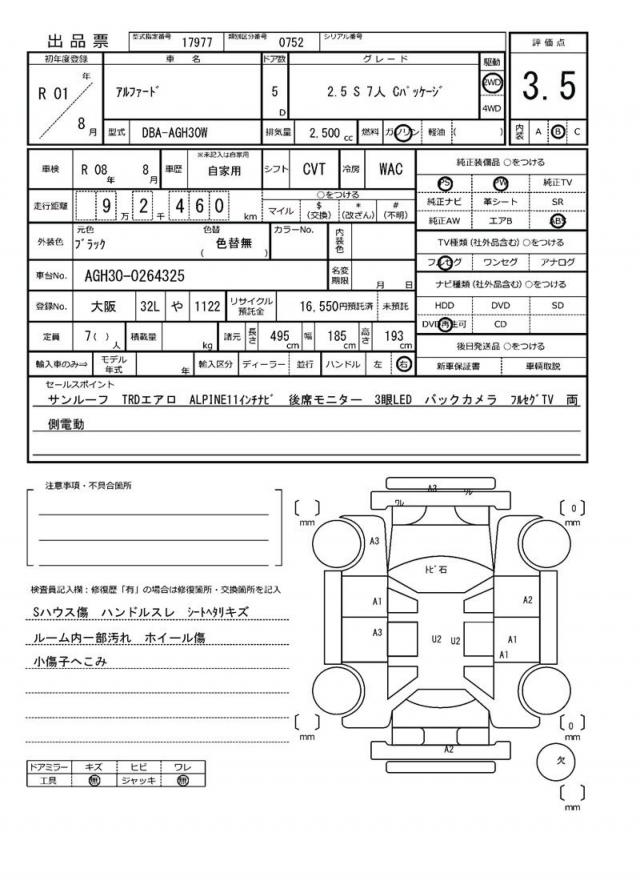 出品票 型式指定番号 17977 類別区分番号 0752 シリアル番号
初年度登録 車名 ドア数 グレード 駆動 評価点
R 01 年 8 月 アルファード 5 D 2.5 S 7人 Cパッケージ 2WD 4WD 3.5
型式 DBA-AGH30W 排気量 2,500 cc 燃料 ガソリン 軽油 ( ) 内装 A B C
車検 R 08 年 8 月 車歴 ※未記入は自家用 自家用 シフト CVT 冷房 WAC 純正装備品 ○をつける
PS PW 純正TV
走行距離 9 万 2 千 4 6 0 km ○をつける マイル $ (交換) * (改ざん) # (不明) 純正ナビ 革シート SR
純正AW エアB ABS
外装色 元色 ブラック 色替 ( 色替無 ) カラーNo. 内装色 TV種類 (社外品含む) ○をつける
フルセグ ワンセグ アナログ
車台No. AGH30-0264325 名変期限 月 日 ナビ種類 (社外品含む) ○をつける
登録No. 大阪 32L や 1122 リサイクル預託金 16,550円預託済 未預託 HDD DVD SD
DVD再生可 CD
定員 7( ) 人 積載量 kg 諸元 長さ 495 cm 幅 185 cm 高さ 193 cm 後日発送品 ○をつける
輸入車のみ⇒ モデル年式 年 輸入区分 ディーラー 並行 ハンドル 左 右 新車保証書 車輌取説
セールスポイント
サンルーフ TRDエアロ ALPINE11インチナビ 後席モニター 3眼LED バックカメラ フルセグTV 両
側電動
注意事項・不具合箇所
検査員記入欄：修復歴「有」の場合は修復箇所・交換箇所を記入
Sハウス傷 ハンドルスレ シートヘタリキズ
ルーム内一部汚れ ホイール傷
小傷子へこみ
ドアミラー キズ ヒビ ワレ
工具 無 ジャッキ 無
A3 ワレ
ワレ
[ ] mm [ 0 ] mm
A3
トビ石
A1 A2
A3 U2 U2 A1
A1
[ ] mm [ 0 ] mm
A2
欠
[ ] mm